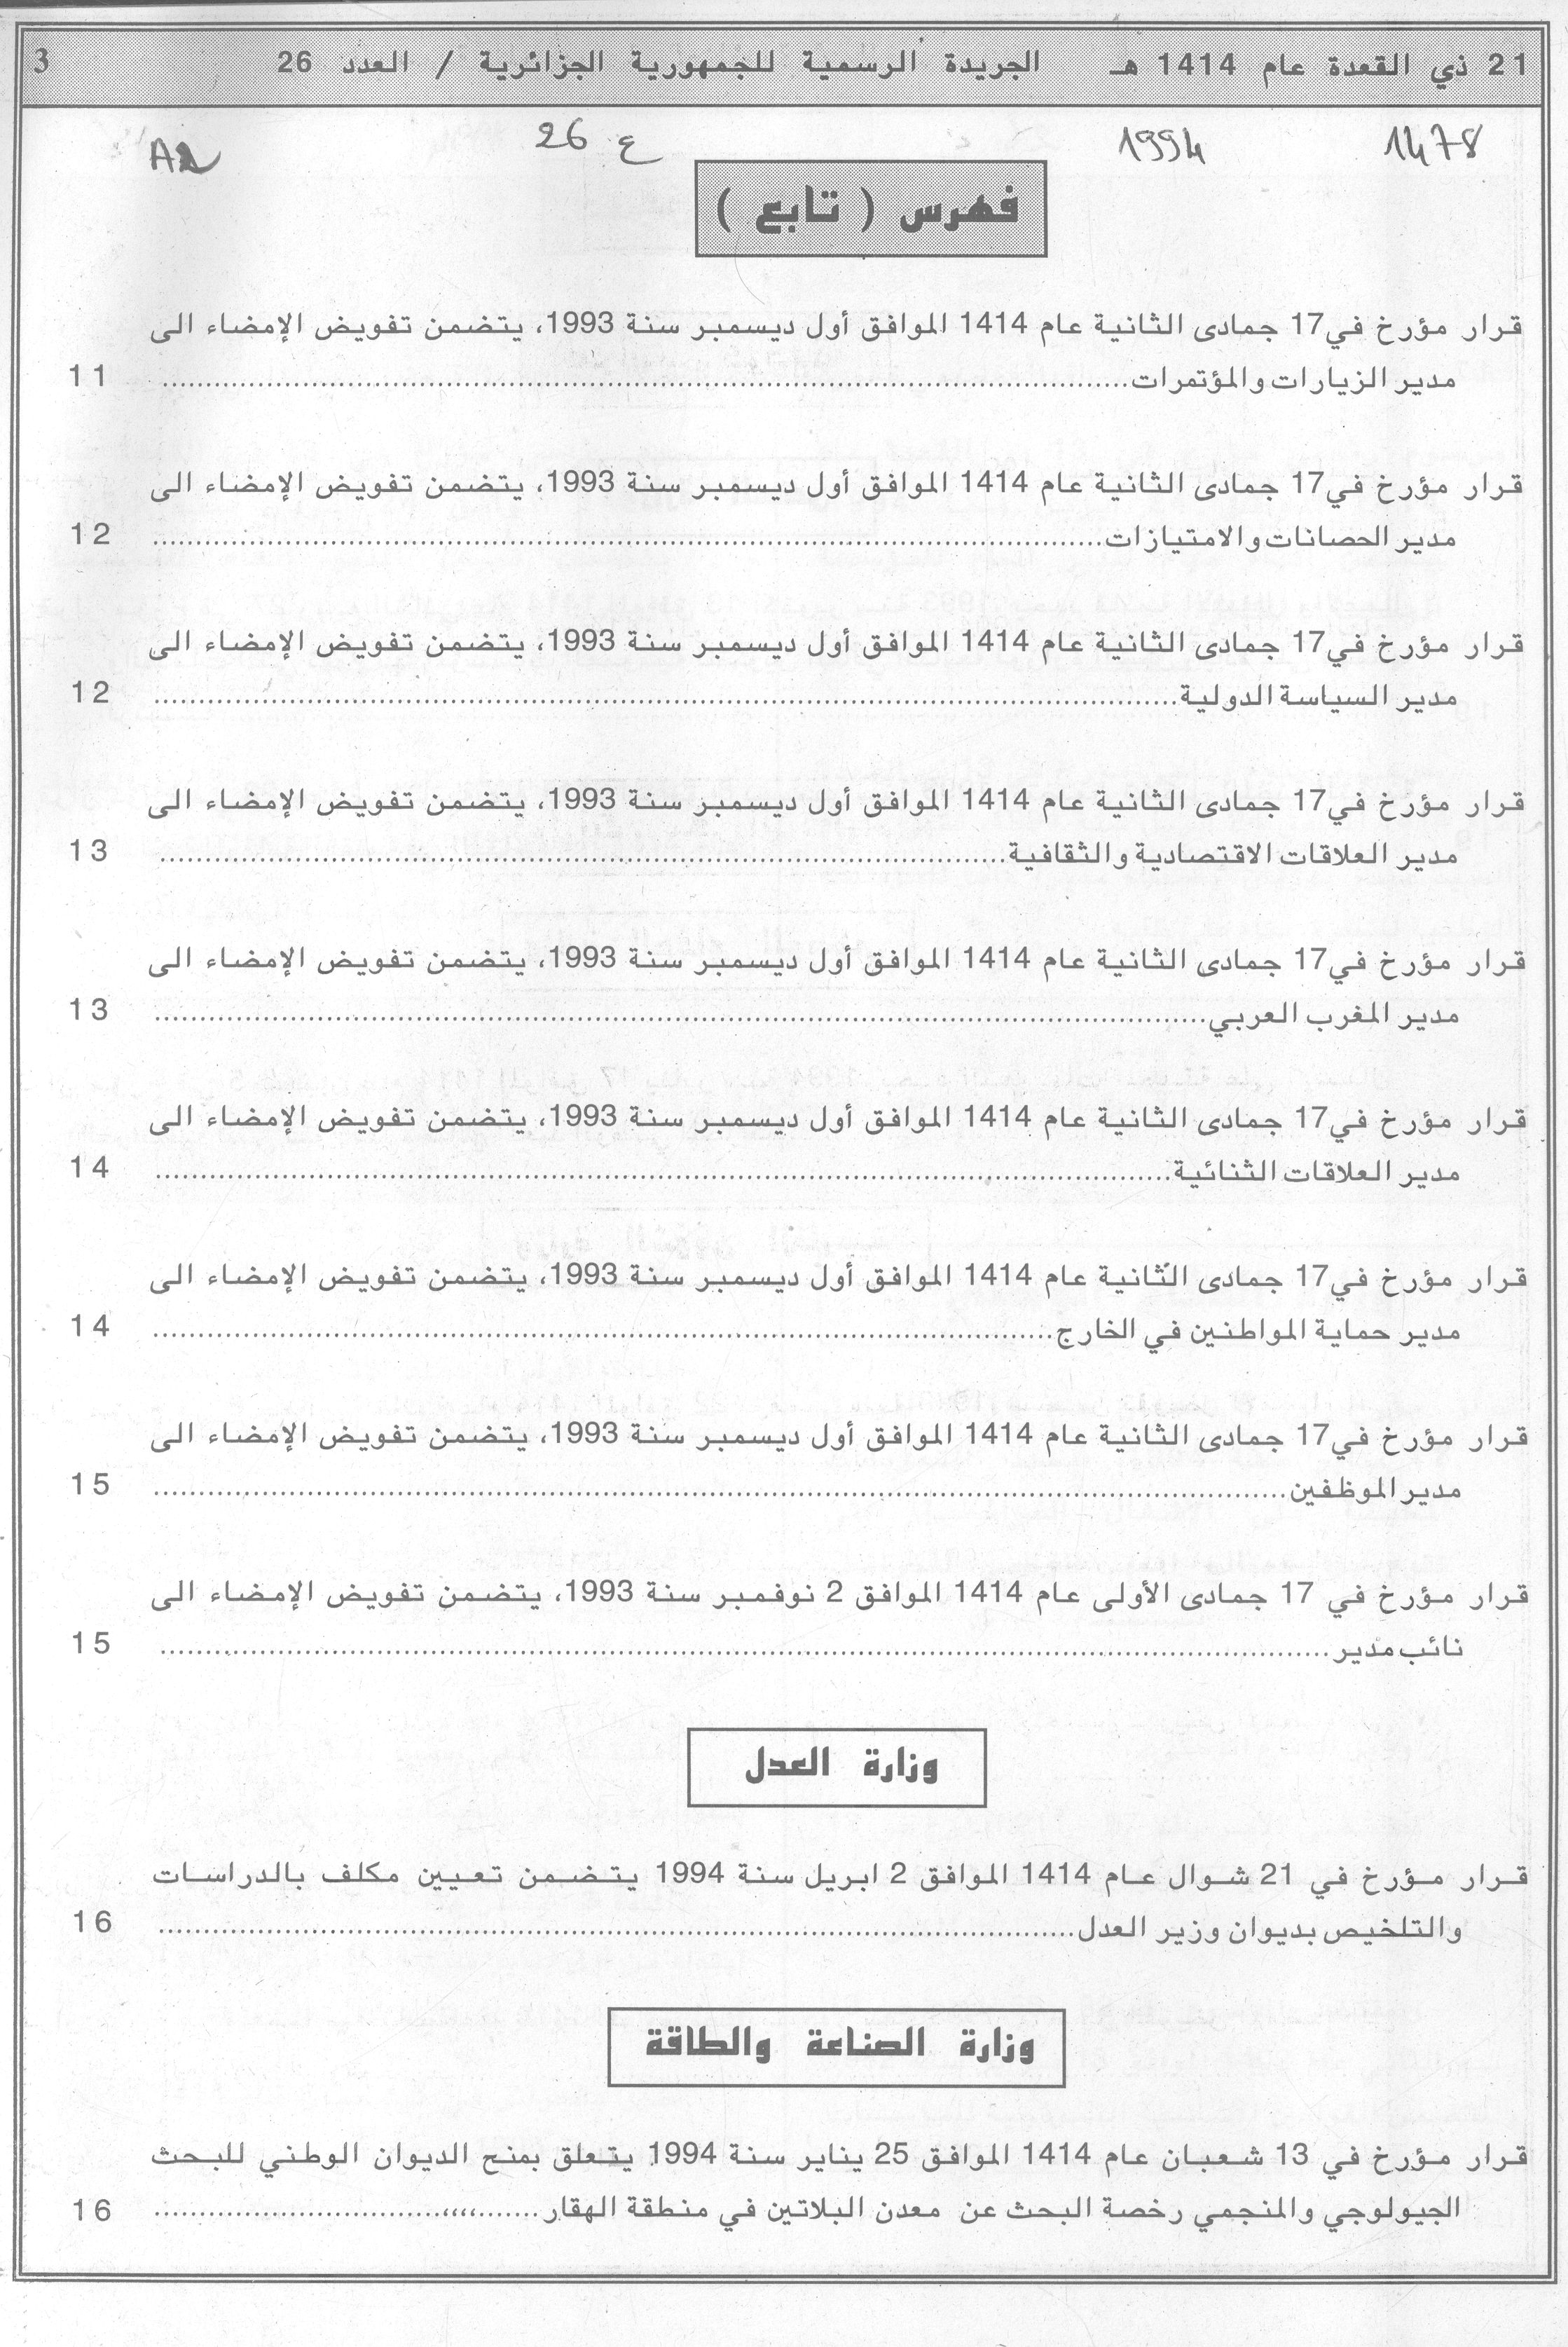 21 ذي القعدة عام 1414 هـ الجريدة الرسمية للجمهورية الجزائرية / العدد 26 3
1478 1994 ع 26 AR
فهرس ( تابع )
قرار مؤرخ في17 جمادى الثانية عام 1414 الموافق أول ديسمبر سنة 1993، يتضمن تفويض الإمضاء الى
مدير الزيارات والمؤتمرات.................... 11
قرار مؤرخ في17 جمادى الثانية عام 1414 الموافق أول ديسمبر سنة 1993، يتضمن تفويض الإمضاء الى
مدير الحصانات والامتيازات.................... 12
قرار مؤرخ في17 جمادى الثانية عام 1414 الموافق أول ديسمبر سنة 1993، يتضمن تفويض الإمضاء الى
مدير السياسة الدولية.................... 12
قرار مؤرخ في17 جمادى الثانية عام 1414 الموافق أول ديسمبر سنة 1993، يتضمن تفويض الإمضاء الى
مدير العلاقات الاقتصادية والثقافية.................... 13
قرار مؤرخ في17 جمادى الثانية عام 1414 الموافق أول ديسمبر سنة 1993، يتضمن تفويض الإمضاء الى
مدير المغرب العربي.................... 13
قرار مؤرخ في17 جمادى الثانية عام 1414 الموافق أول ديسمبر سنة 1993، يتضمن تفويض الإمضاء الى
مدير العلاقات الثنائية.................... 14
قرار مؤرخ في17 جمادى الثانية عام 1414 الموافق أول ديسمبر سنة 1993، يتضمن تفويض الإمضاء الى
مدير حماية المواطنين في الخارج.................... 14
قرار مؤرخ في17 جمادى الثانية عام 1414 الموافق أول ديسمبر سنة 1993، يتضمن تفويض الإمضاء الى
مدير الموظفين.................... 15
قرار مؤرخ في 17 جمادى الأولى عام 1414 الموافق 2 نوفمبر سنة 1993، يتضمن تفويض الإمضاء الى
نائب مدير.................... 15
وزارة العدل
قرار مؤرخ في 21 شوال عام 1414 الموافق 2 ابريل سنة 1994 يتضمن تعيين مكلف بالدراسات
والتلخيص بديوان وزير العدل.................... 16
وزارة الصناعة والطاقة
قرار مؤرخ في 13 شعبان عام 1414 الموافق 25 يناير سنة 1994 يتعلق بمنح الديوان الوطني للبحث
الجيولوجي والمنجمي رخصة البحث عن معدن البلاتين في منطقة الهقار.......،،،،.................... 16